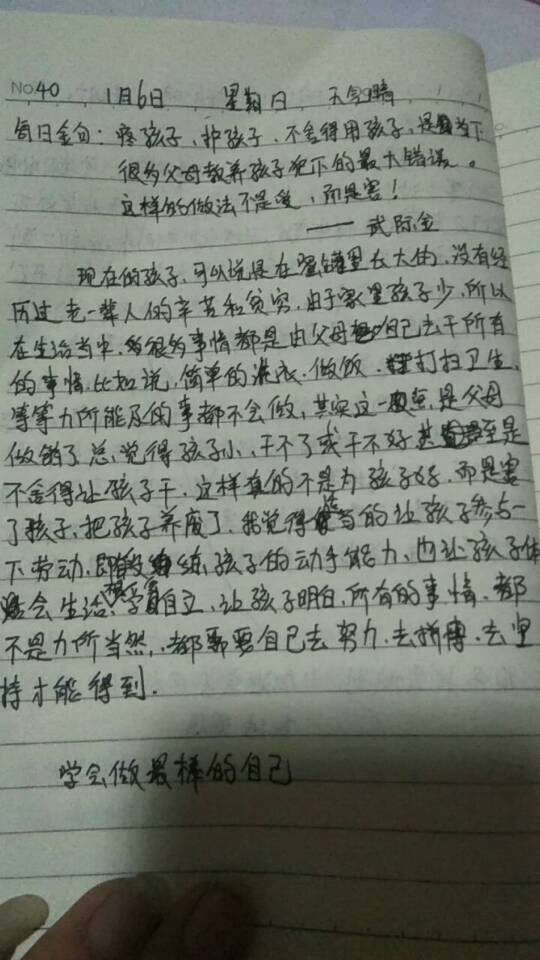 No 40 1月6日 星期日 天气晴
每日金句：疼孩子、护孩子、不舍得用孩子，是当下
很多父母教养孩子犯下的最大错误。
这样的做法不是爱，而是害！
—— 武际金
现在的孩子，可以说是在蜜罐里长大的，没有经
历过老一辈人的辛苦和贫穷，由于家里孩子少，所以
在生活当中，很多事情都是由父母自己去干所有
的事情，比如说，简单的洗衣、做饭、打扫卫生，
等等力所能及的事都不会做，其实这一点，是父母
做错了，总觉得孩子小，干不了或干不好，甚至是
不舍得让孩子干，这样真的不是为孩子好，而是害
了孩子，把孩子养废了，我觉得适当的让孩子参与一
下劳动，即锻练孩子的动手能力，也让孩子体
会生活，学习自立，让孩子明白，所有的事情，都
不是力所当然，都要自己去努力，去拼搏，去坚
持才能得到.
学会做最棒的自己